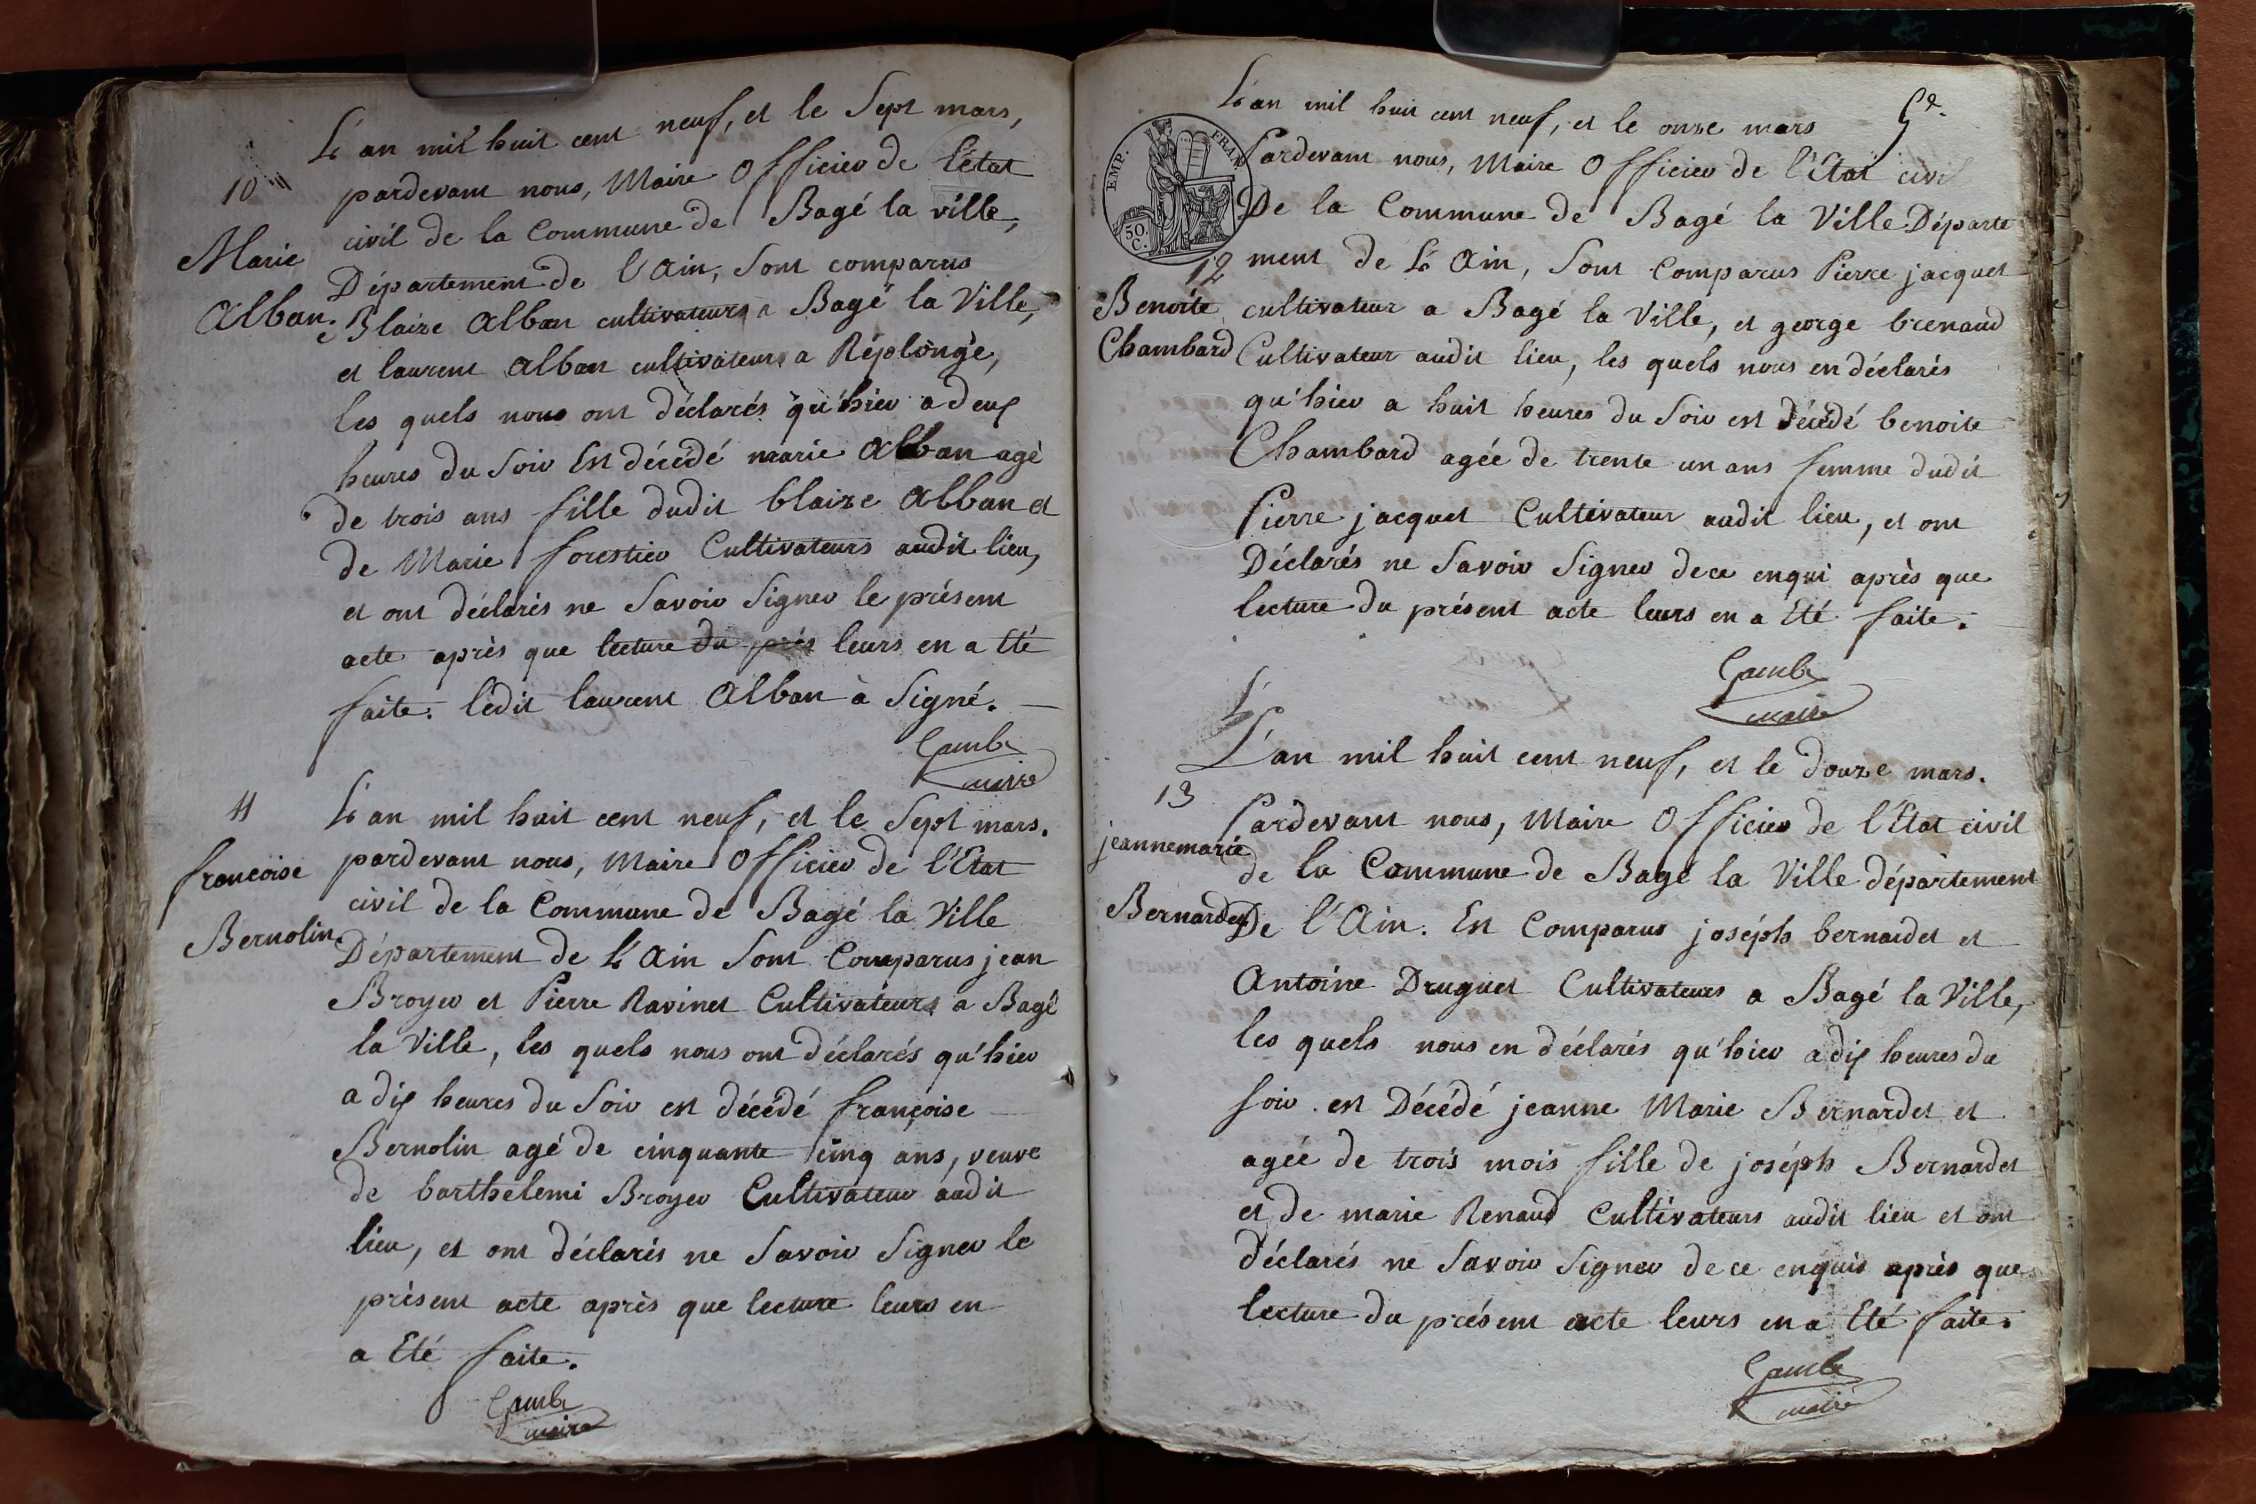 L'an mil huit cent neuf, et le Sept mars,
10
pardevant nous, Maire Officier de l'état
civil de la Commune de Bagé la ville,
Marie
Département de l'Ain, Sont comparus
Alban.
Blaize Alban cultivateurs a Bagé la Ville,
et laurent Alban cultivateurs a Réplonge,
les quels nous ont déclarés qu'hier a deux
heures du Soir Est décédé marie Alban agé
de trois ans fille dudit blaize Alban et
de Marie forestier Cultivateurs audit lieu,
et ont déclarés ne Savoir Signer le présent
acte après que lecture du prés leurs en a été
faite. ledit laurent Alban à Signé.
Gambe
maire
11
L'an mil huit cent neuf, et le Sept mars.
pardevant nous, Maire Officier de l'Etat
françoise
civil de la Commune de Bagé la Ville
Bernolin
Département de L'Ain Sont Comparus jean
Broyer et Pierre Ravinet Cultivateurs a Bagé
la Ville, les quels nous ont déclarés qu'hier
a dix heures du Soir est décédé françoise
Bernolin agé de cinquante cinq ans, veuve
de barthelemi Broyer Cultivateur audit
lieu, et ont déclarés ne Savoir Signer le
présent acte après que lecture leurs en
a Eté faite.
Gambe
maire
L'an mil huit cent neuf, et le onze mars
5e.
EMP. FRAN.
50. C.
Pardevant nous, Maire Officier de l'Etat civil
De la Commune de Bagé la Ville Départe
ment de L'Ain, Sont Comparus Pierre jacquet
12
Benoite
cultivateur a Bagé la Ville, et george brenaud
Chambard
Cultivateur audit lieu, les quels nous en déclarés
qu'hier a huit heures du Soir est Décédé benoite
Chambard agée de trente un ans femme dudit
Pierre jacquet Cultivateur audit lieu, et ont
Déclarés ne Savoir Signer de ce enqui après que
lecture du présent acte leurs en a Eté faite.
Gambe
maire
L'
L'an mil huit cent neuf, et le douze mars.
13
Pardevant nous, Maire Officier de l'Etat civil
jeannemarie
de la Commune de Bagé la Ville département
Bernardet
De l'Ain. Est Comparus joséph bernardet et
Antoine Druguet Cultivateurs a Bagé la Ville,
les quels nous en déclarés qu'hier a dix heures du
soir est Décédé jeanne Marie Bernardet et
agée de trois mois fille de joséph Bernardet
et de marie Renaud Cultivateurs audit lieu et ont
déclarés ne Savoir Signer de ce enquis après que
lecture du présent acte leurs en a Eté faite.
Gambe
maire